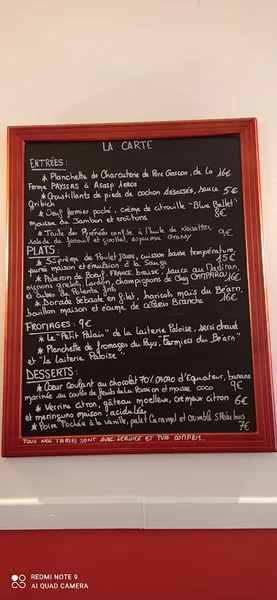 LA CARTE
ENTRÉES :
* Planchette de Charcuterie de Porc Gascon, de la 16€
Ferme PAYSSAS à Asasp Arros
* Croustillants de pieds de cochon désossés, sauce 5€
Gribich
* Oeuf fermier poché, crème de citrouille "Blue Ballet"
mousse de Jambon et croûtons 8€
* Truite des Pyrénées confite à l'huile de Noisettes,
salade de fenouil et girolles, espuma 9€
PLATS :
* Suprême de Poulet Jaune, cuisson basse température,
purée maison et émulsion à la Sauge 15€
* Paleron de Boeuf FRANCE braisé, sauce au Madiran,
oignons grelots, lardon, champignons de Chez 16€
et cubes de Polenta frits
* Dorade Sébaste en filet, haricots maïs du Béarn,
bouillon maison et écume de céleris Branche 16€
FROMAGES : 9€
* Le "Petit Palain" de la Laiterie Paloise, servi chaud
* Planchette de fromages du Pays, "Fermiers du Béarn"
et "La Laiterie Paloise"
DESSERTS :
* Coeur coulant au chocolat 70% CACAO d'Equateur, banane
marinée au coulis de fruits de la Passion et mousse coco 9€
* Verrine citron, gâteau moelleux, crémeux citron 6€
et meringues maison, acidulée
* Poire Pochée à la vanille, palet Caramel et crumble Spéculoos
7€
TOUS NOS TARIFS SONT AVEC SERVICE ET TVA COMPRIS.
REDMI NOTE 9
AI QUAD CAMERA